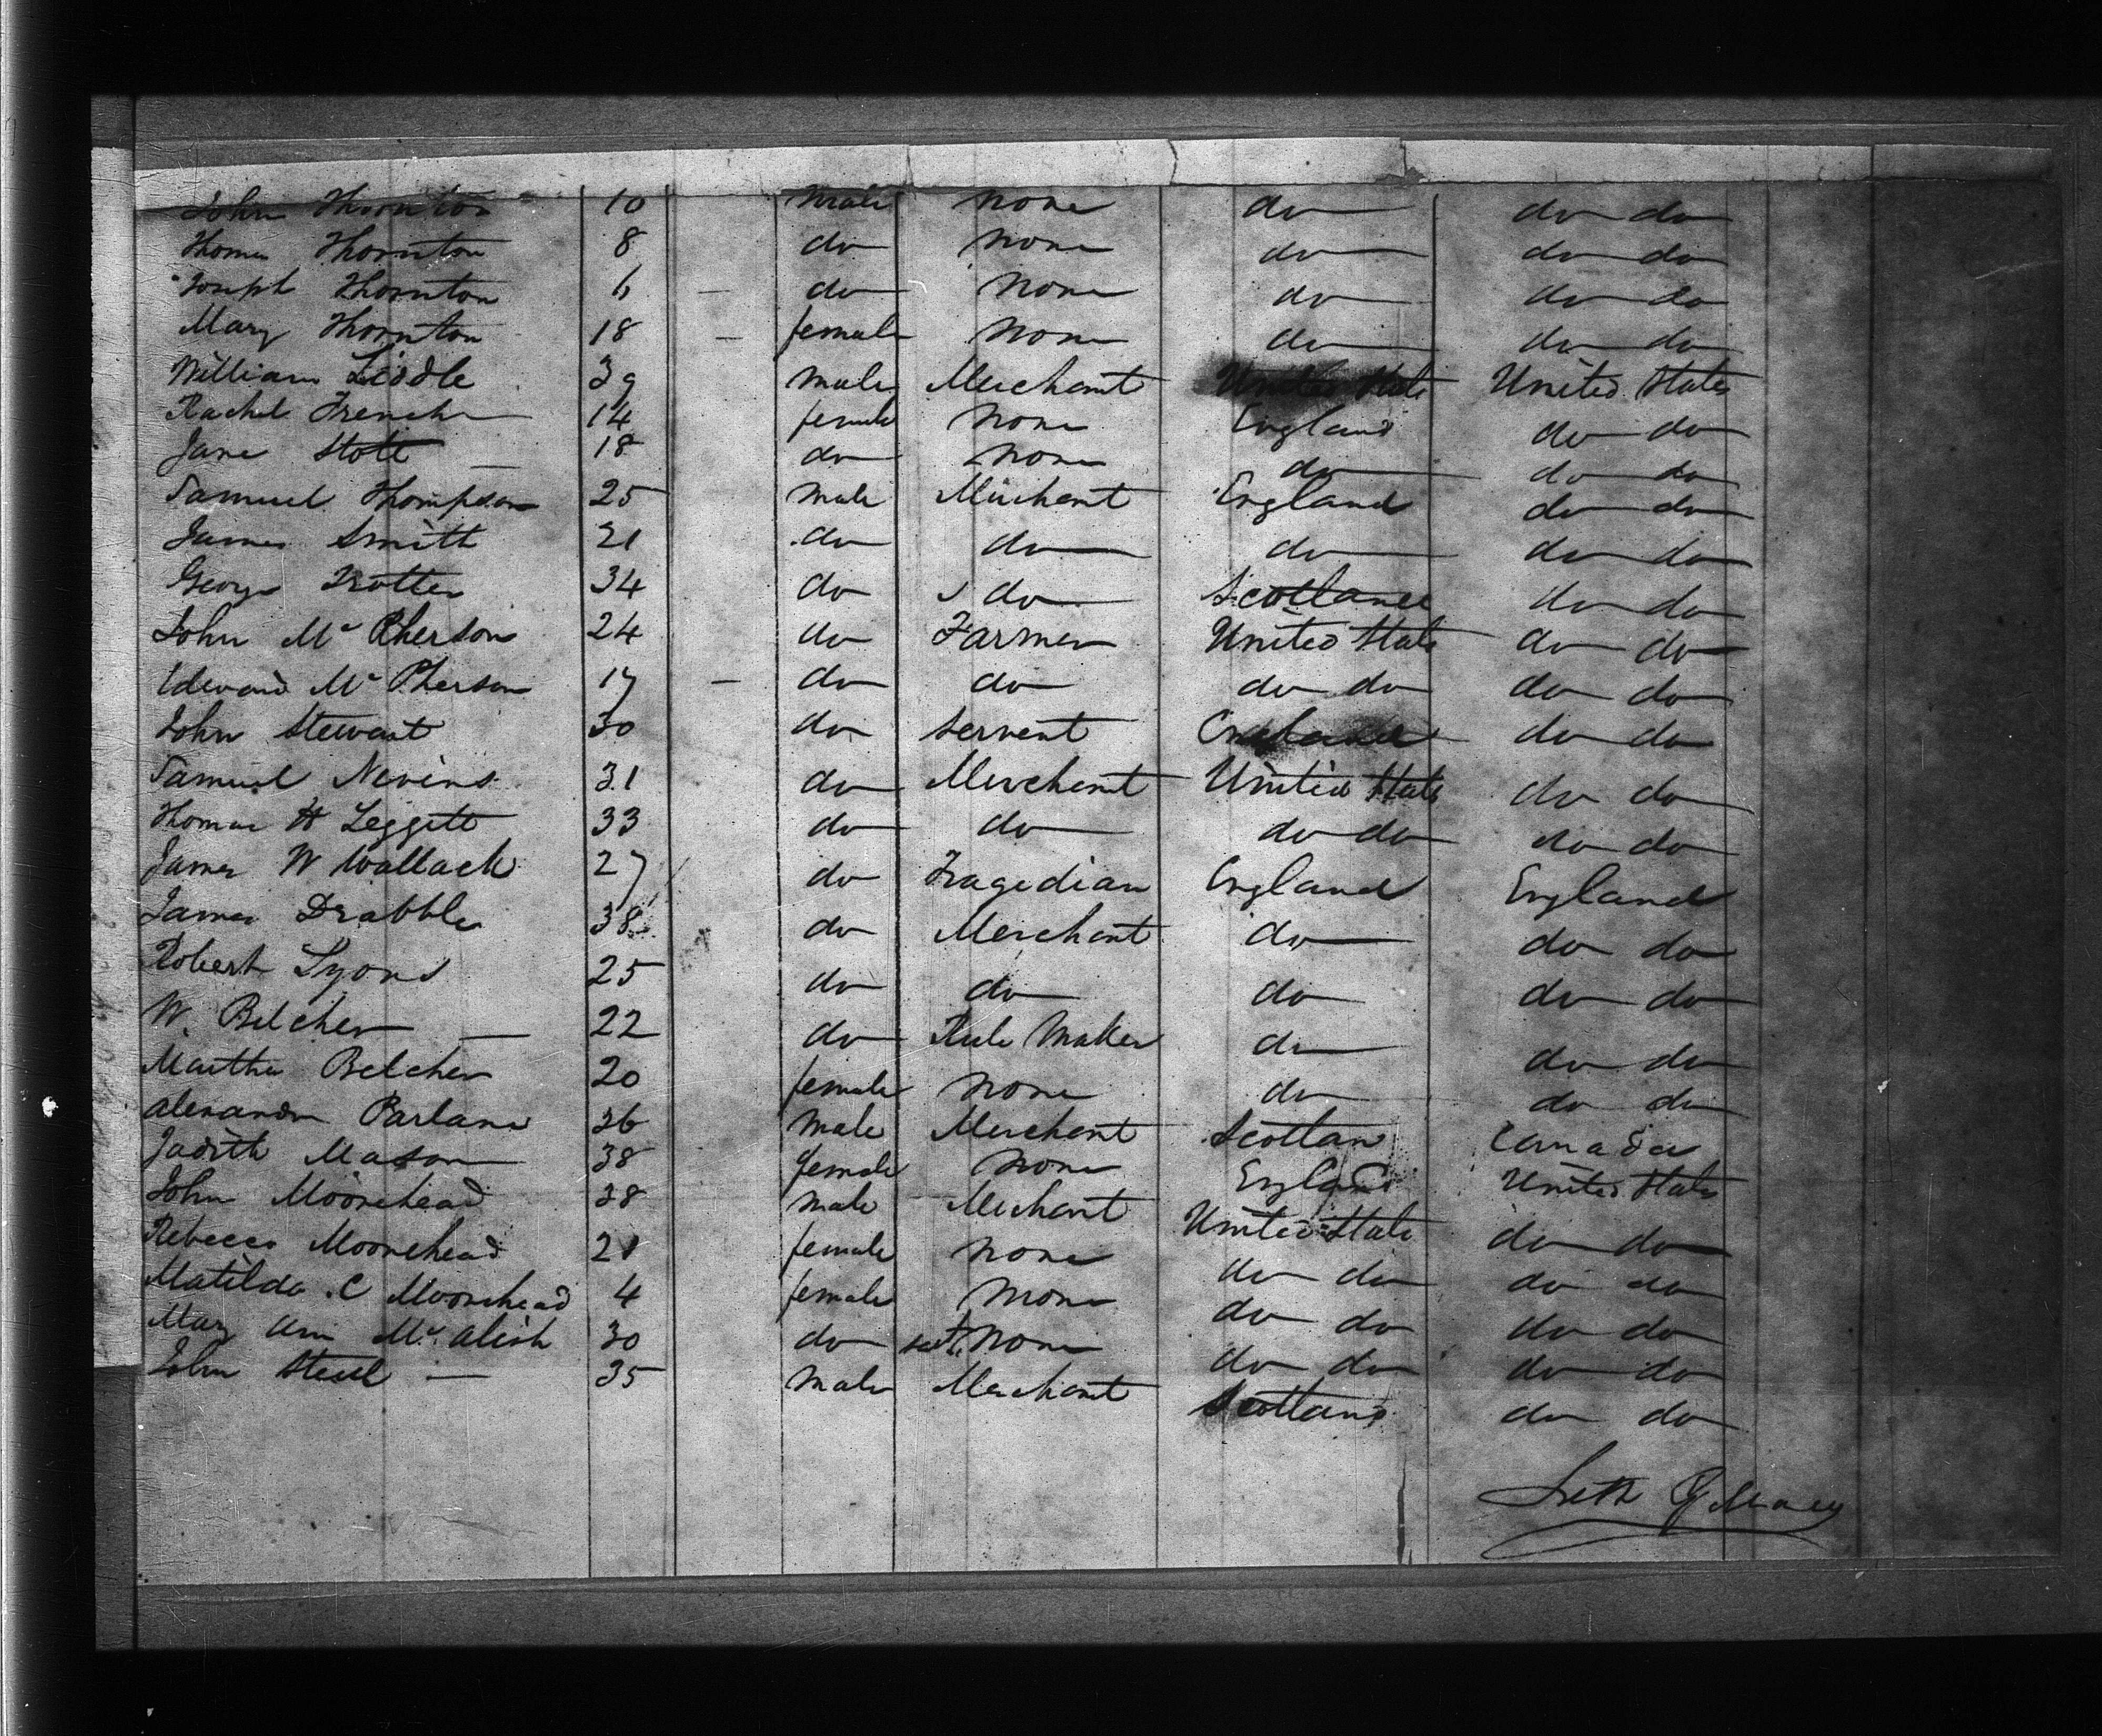 John Thornton 10 male none do do do
Thomas Thornton 8 do none do do do
Joseph Thornton 6 — do none do do do
Mary Thornton 18 — female none do do do
William Liddle 39 male Merchant United State United States
Rachel French 14 female none England do do
Jane Stott — 18 do none do do do
Samuel Thompson 25 male Merchant England do do
James Smith 21 do do do do do
George Trotter 34 do do Scotland do do
John Mc Pherson 24 do Farmer United State do do
Edward Mc Pherson 17 — do do do do do do
John Stewart 30 do Servent England do do
Samuel Nevins 31 do Merchant United State do do
Thomas H Leggett 33 do do do do do do
James W Wallack 27 do Tragedian England England
James Drabble 38 do Merchant do do do
Robert Lyons 25 do do do do do
W. Belcher — 22 do Rule Maker do do do
Martha Belcher 20 female none do do do
Alexander Parlane 36 male Merchant Scotlan Canada
Judith Mason 38 female none England United States
John Moorehead 38 male Merchant United State do do
Rebecca Moorehead 21 female none do do do do
Matilda C Moorehead 4 female none do do do do
Mary Ann Mc Alish 30 do none do do do do
John Steel — 35 male Merchant Scotland do do
Seth G Macy